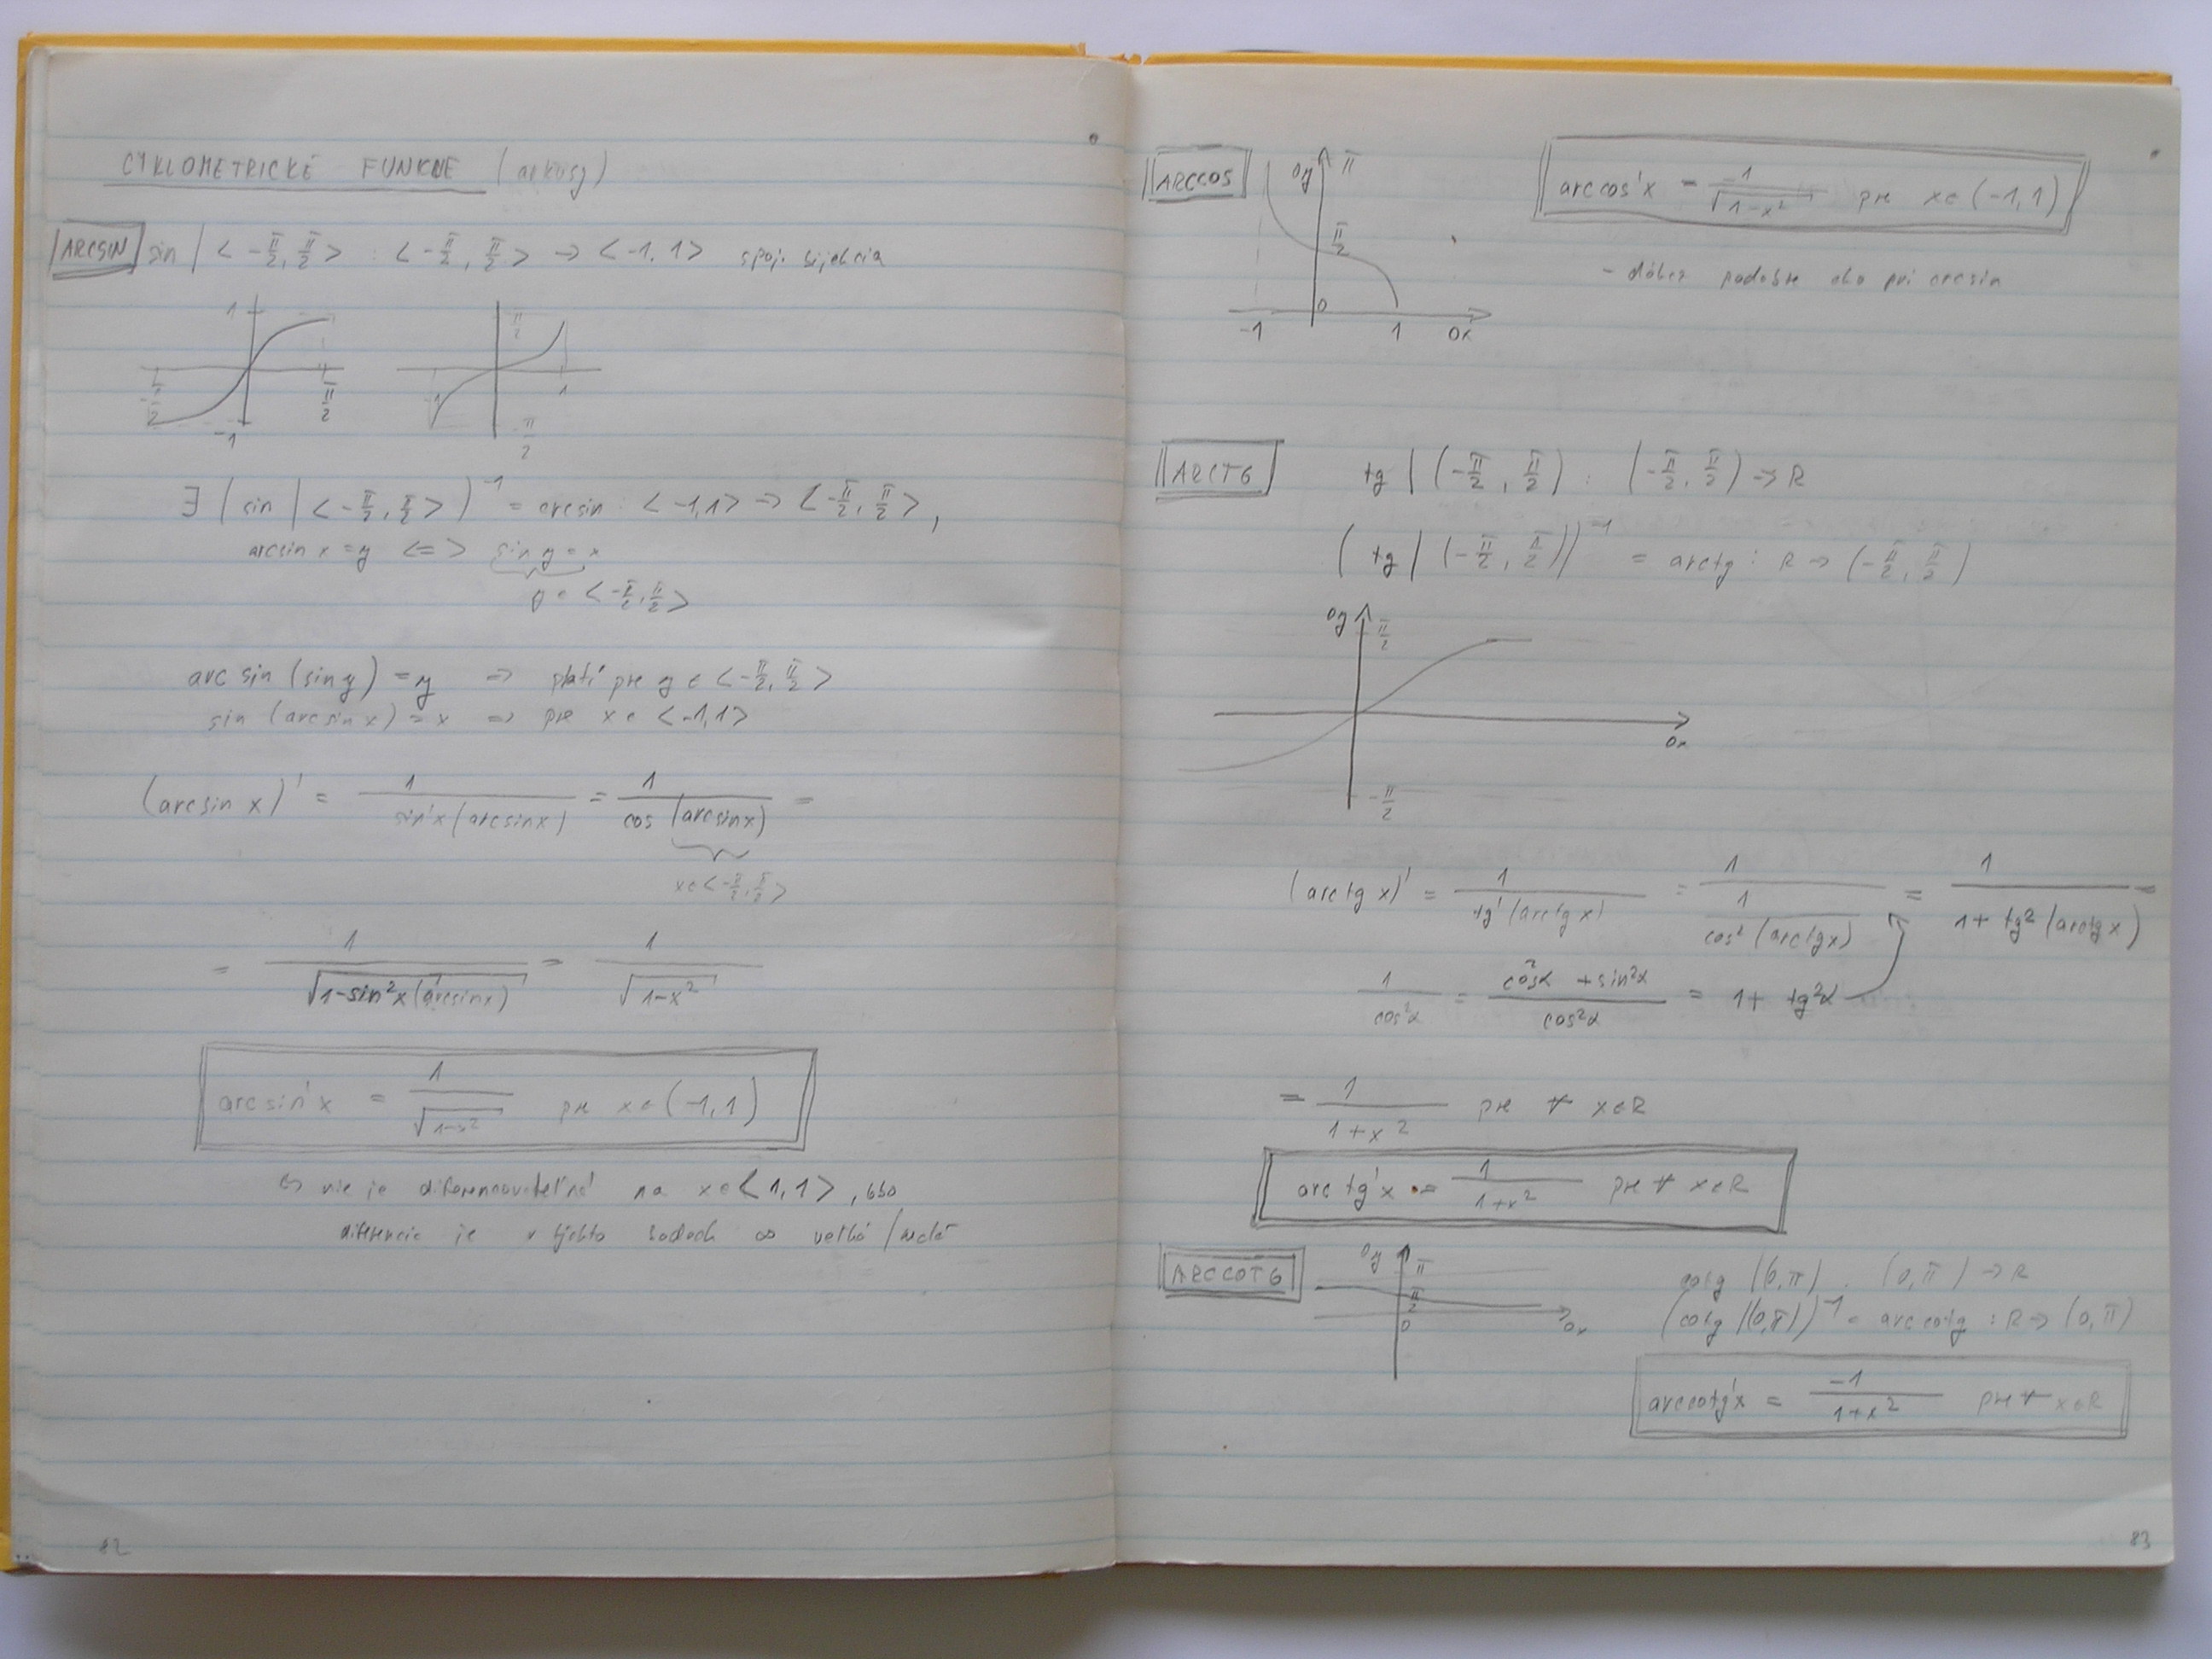 CYKLOMETRICKÉ FUNKCIE (arkusy)
ARCSIN sin | < -π/2, π/2 > : < -π/2, π/2 > → < -1, 1 > spoj. bijekcia
1
-π/2 π/2
-1
π/2
-1 1
-π/2
∃ ( sin | < -π/2, π/2 > )⁻¹ = arcsin : < -1,1 > → < -π/2, π/2 > ,
arcsin x = y <=> sin y = x
y ∈ < -π/2, π/2 >
arc sin (sin y) = y ⇒ platí pre y ∈ < -π/2, π/2 >
sin (arcsin x) = x ⇒ pre x ∈ < -1,1 >
(arcsin x)' = 1 / sin'x (arcsin x) = 1 / cos (arcsin x) =
x ∈ < -π/2, π/2 >
= 1 / √(1-sin²x (arcsin x)) = 1 / √(1-x²)
arcsin'x = 1 / √(1-x²) pre x ∈ (-1,1)
nie je diferencovateľná na x ∈ < 1,1 > , lebo
diferencia je v týchto bodoch ∞ veľká / malá
82
ARCCOS
oy π
π/2
0
-1 1 ox
arccos'x = -1 / √(1-x²) pre x ∈ (-1,1)
- dôkaz podobne ako pri arcsin
ARCTG tg | (-π/2, π/2) : (-π/2, π/2) → R
( tg | (-π/2, π/2))⁻¹ = arctg : R → (-π/2, π/2)
oy π/2
ox
-π/2
(arctg x)' = 1 / tg' (arctg x) = 1 / (1 / cos² (arctg x)) = 1 / (1 + tg² (arctg x)) =
1 / cos²α = (cos²α + sin²α) / cos²α = 1 + tg²α
= 1 / (1 + x²) pre ∀ x∈R
arc tg'x = 1 / (1+x²) pre ∀ x∈R
ARCCOTG
oy π
π/2
0 ox
cotg |(0,π) : (0,π) → R
(cotg |(0,π))⁻¹ = arccotg : R → (0,π)
arccotg'x = -1 / (1+x²) pre ∀ x∈R
83